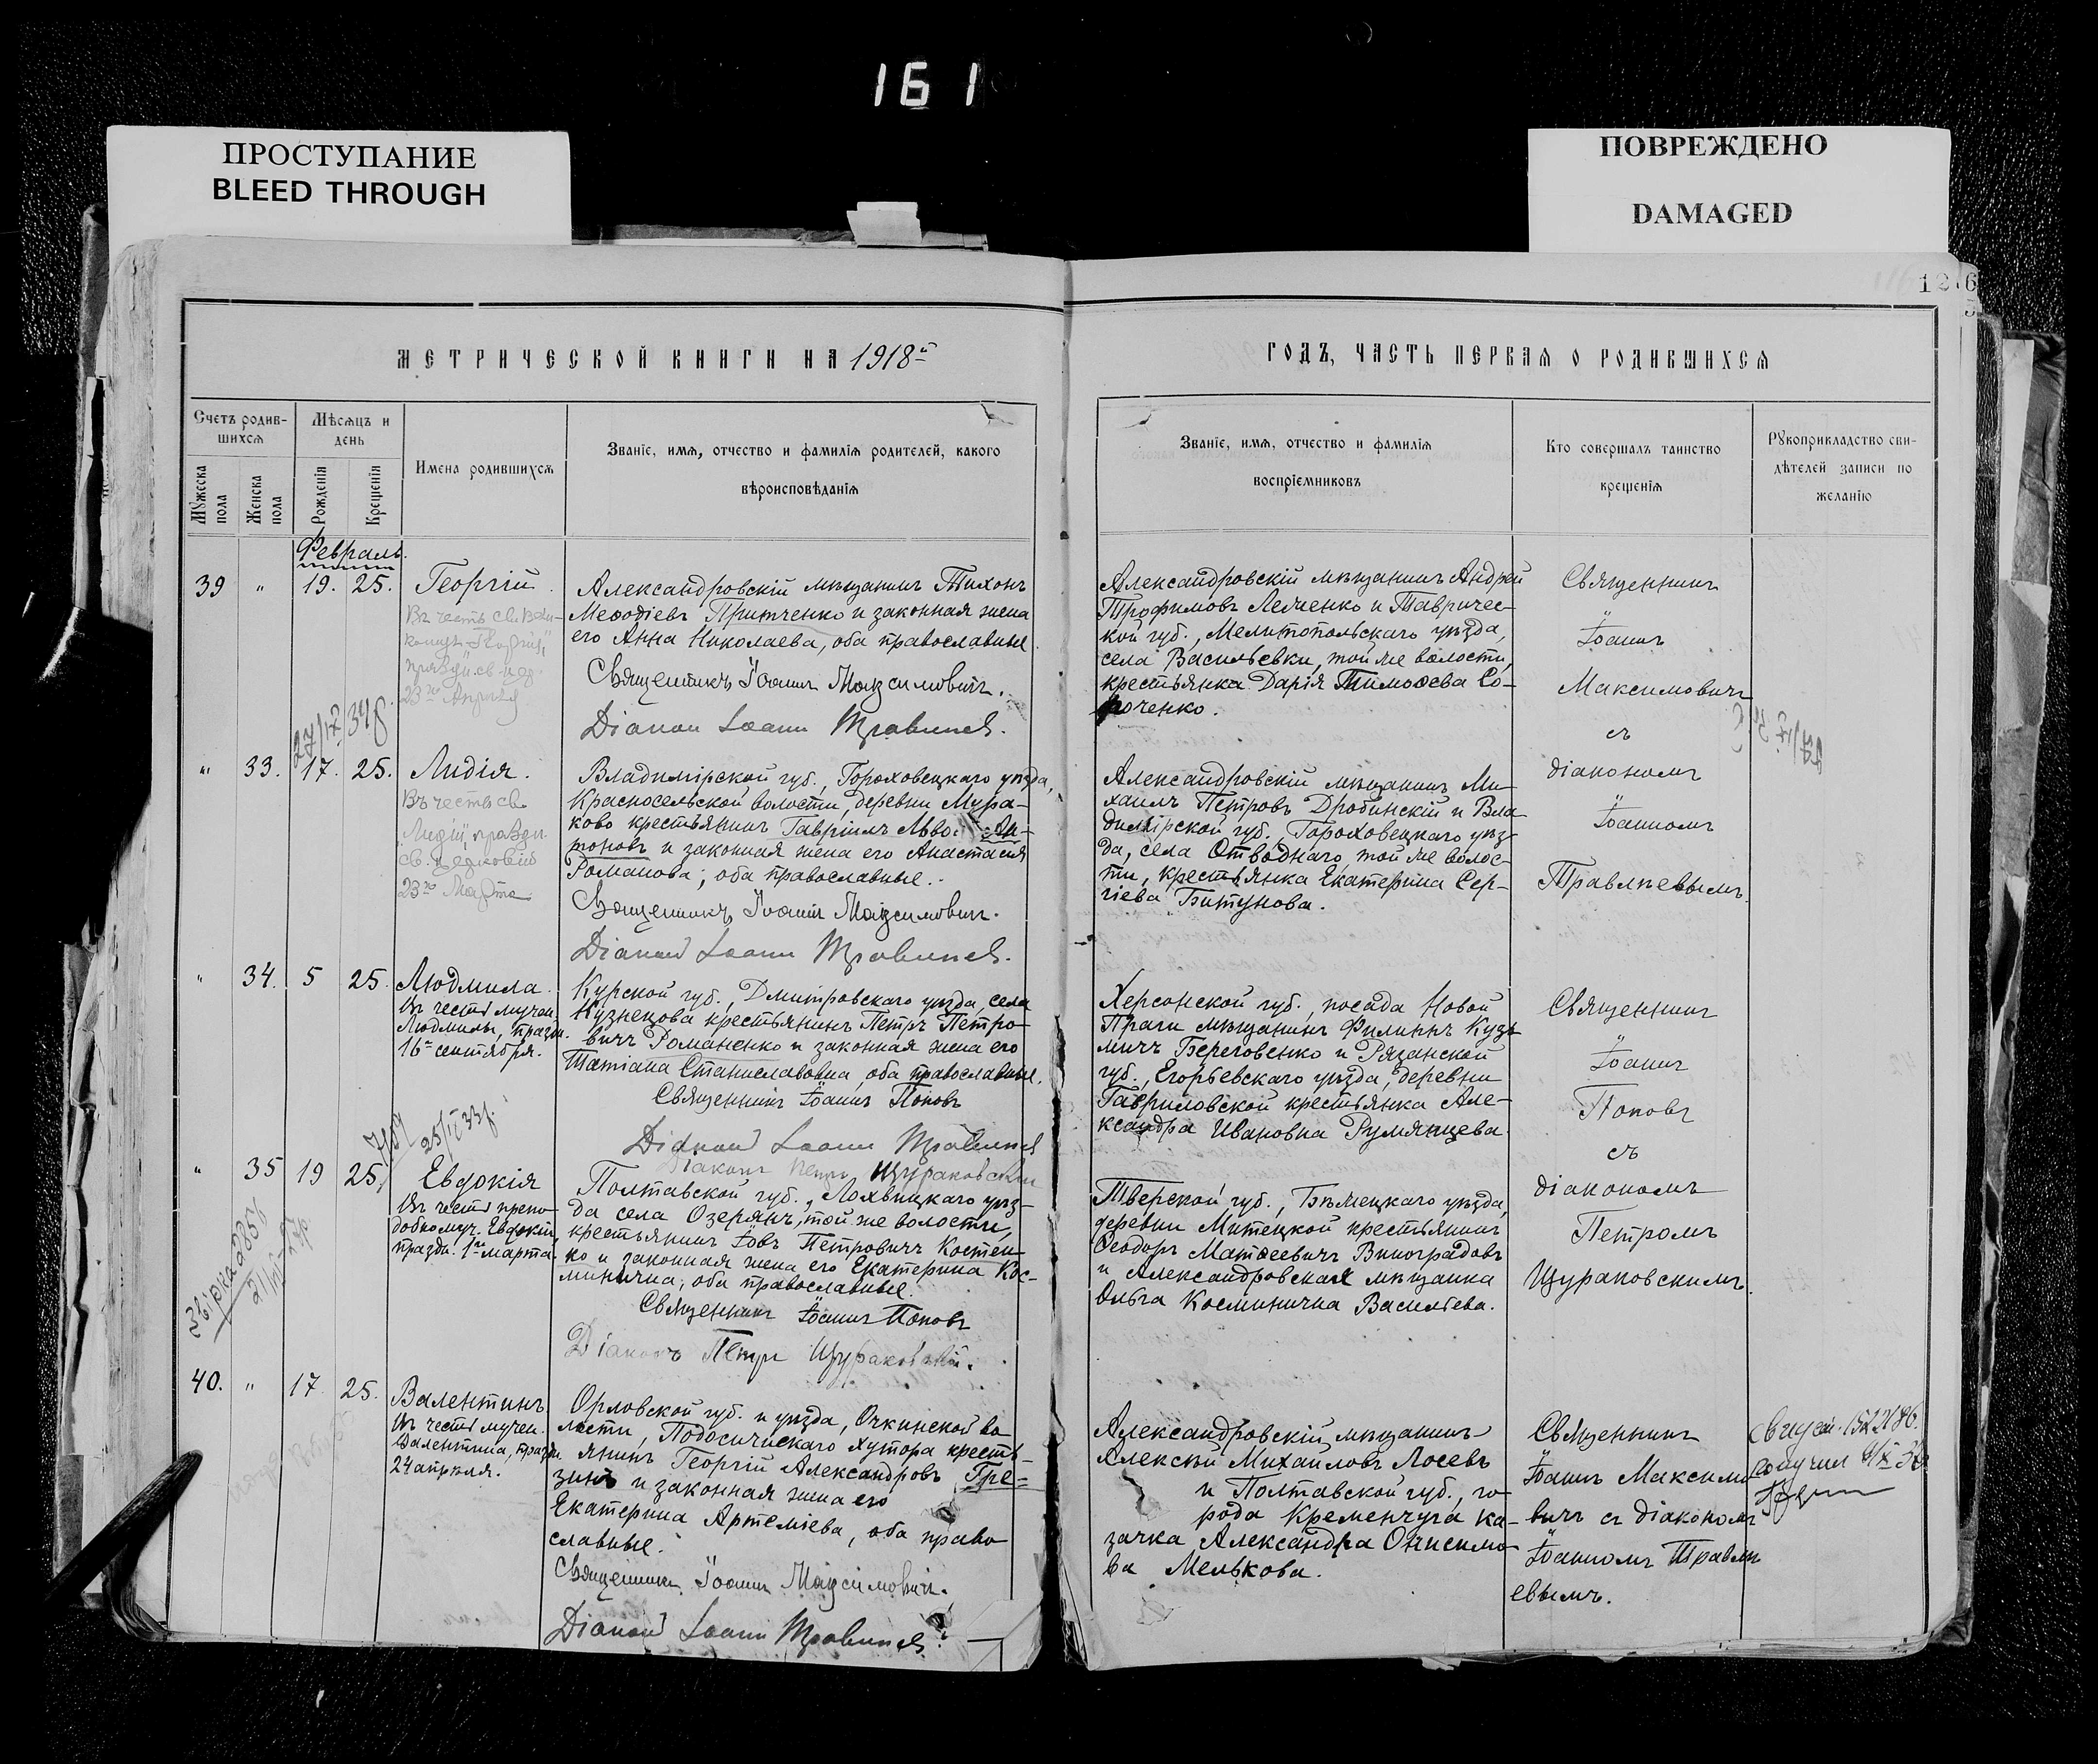 161
ПРОСТУПАНИЕ
BLEED THROUGH
ПОВРЕЖДЕНО
DAMAGED
126
МЕТРИЧЕСКОЙ КНИГИ НА 1918й
ГОДЪ, ЧАСТЬ ПЕРВАЯ О РОДИВШИХСЯ
Счетъ родив-
шихся
Мужеска пола
Женска пола
Мѣсяцъ и
день
Рожденія
Крещенія
Имена родившихся
Званіе, имя, отчество и фамилія родителей, какого
вѣроисповѣданія
Званіе, имя, отчество и фамилія
воспріемниковъ
Кто совершалъ таинство
крещенія
Рукоприкладство сви-
дѣтелей записи по
желанію
Февраль.
39 " 19. 25. Георгій.
Въ честь св. Вели-
23го Апрѣля
Александровскій мѣщанинъ Тихонъ
Меѳодіевъ Притченко и законная жена
его Анна Николаева, оба православные.
Священникъ Іоаннъ Максимовичъ.
Діаконъ Іоаннъ Травлѣевъ.
Александровскій мѣщанинъ Андрей
Трофимовъ Лемченко и Тавричес-
кой губ., Мелитопольскаго уѣзда,
села Васильевки, той же волости,
крестьянка Дарія Тимоѳеева Со-
роченко.
Священникъ
Іоаннъ
Максимовичъ
съ
діакономъ
Іоанномъ
Травлѣевымъ.
" 33. 17. 25. Лидія.
Въ честь св.
Лидіи, праздн.
23го Марта
Владимірской губ., Гороховецкаго уѣзда,
Красносельской волости, деревни Мура-
ково крестьянинъ Гавріилъ Ан-
тоновъ и законная жена его Анастасія
Романова, оба православные.
Священникъ Іоаннъ Максимовичъ.
Діаконъ Іоаннъ Травлѣевъ.
Александровскій мѣщанинъ Ми-
хаилъ Петровъ Дробинскій и Вла-
димірской губ., Гороховецкаго уѣз-
да, села Отводнаго, той же волос-
ти, крестьянка Екатерина Сер-
гіева Битунова.
" 34. 5 25. Людмила.
Въ честь мучен.
Людмилы, праздн.
16го сентября.
Курской губ., Дмитровскаго уѣзда, села
Кузнецова крестьянинъ Петръ Петро-
вичъ Романенко и законная жена его
Татіана Станиславовна, оба православные.
Священникъ Іоаннъ Поповъ
Діаконъ Іоаннъ Травлѣевъ
Діаконъ Петръ Щураковскій
Херсонской губ., посада Новой
Праги мѣщанинъ Филиппъ Кузь-
мичъ Береговенко и Рязанской
губ., Егорьевскаго уѣзда, деревни
Гавриловской крестьянка Але-
ксандра Ивановна Румянцева.
Священникъ
Іоаннъ
Поповъ
съ
діакономъ
Петромъ
Щураковскимъ.
" 35 19 25. Евдокія
Въ честь препо-
добномуч. Евдокіи,
праздн. 1го марта.
Полтавской губ., Лохвицкаго уѣз-
да села Озерянъ, той же волости,
крестьянинъ Іовъ Петровичъ Костен-
ко и законная жена его Екатерина Кос-
минична, оба православные.
Священникъ Іоаннъ Поповъ
Діаконъ Петръ Щураковскій.
Тверской губ., Бѣжецкаго уѣзда,
деревни Митецкой крестьянинъ
Ѳеодоръ Матѳеевичъ Виноградовъ
и Александровская мѣщанка
Ольга Косминична Васильева.
40. " 17. 25. Валентинъ.
Въ честь мучен.
Валентина, праздн.
24 апрѣля.
Орловской губ. и уѣзда, Очкинской во-
лости, Подосичнскаго хутора кресть-
янинъ Георгій Александровъ Гре-
зинъ и законная жена его
Екатерина Артеміева, оба право-
славные.
Священникъ Іоаннъ Максимовичъ.
Діаконъ Іоаннъ Травлѣевъ.
Александровскій мѣщанинъ
Алексѣй Михаиловъ Лосевъ
и Полтавской губ., го-
рода Кременчуга ка-
зачка Александра Онисимо-
ва Мелькова.
Священникъ
Іоаннъ Максимо-
вичъ съ діакономъ
Іоанномъ Травлѣ-
евымъ.